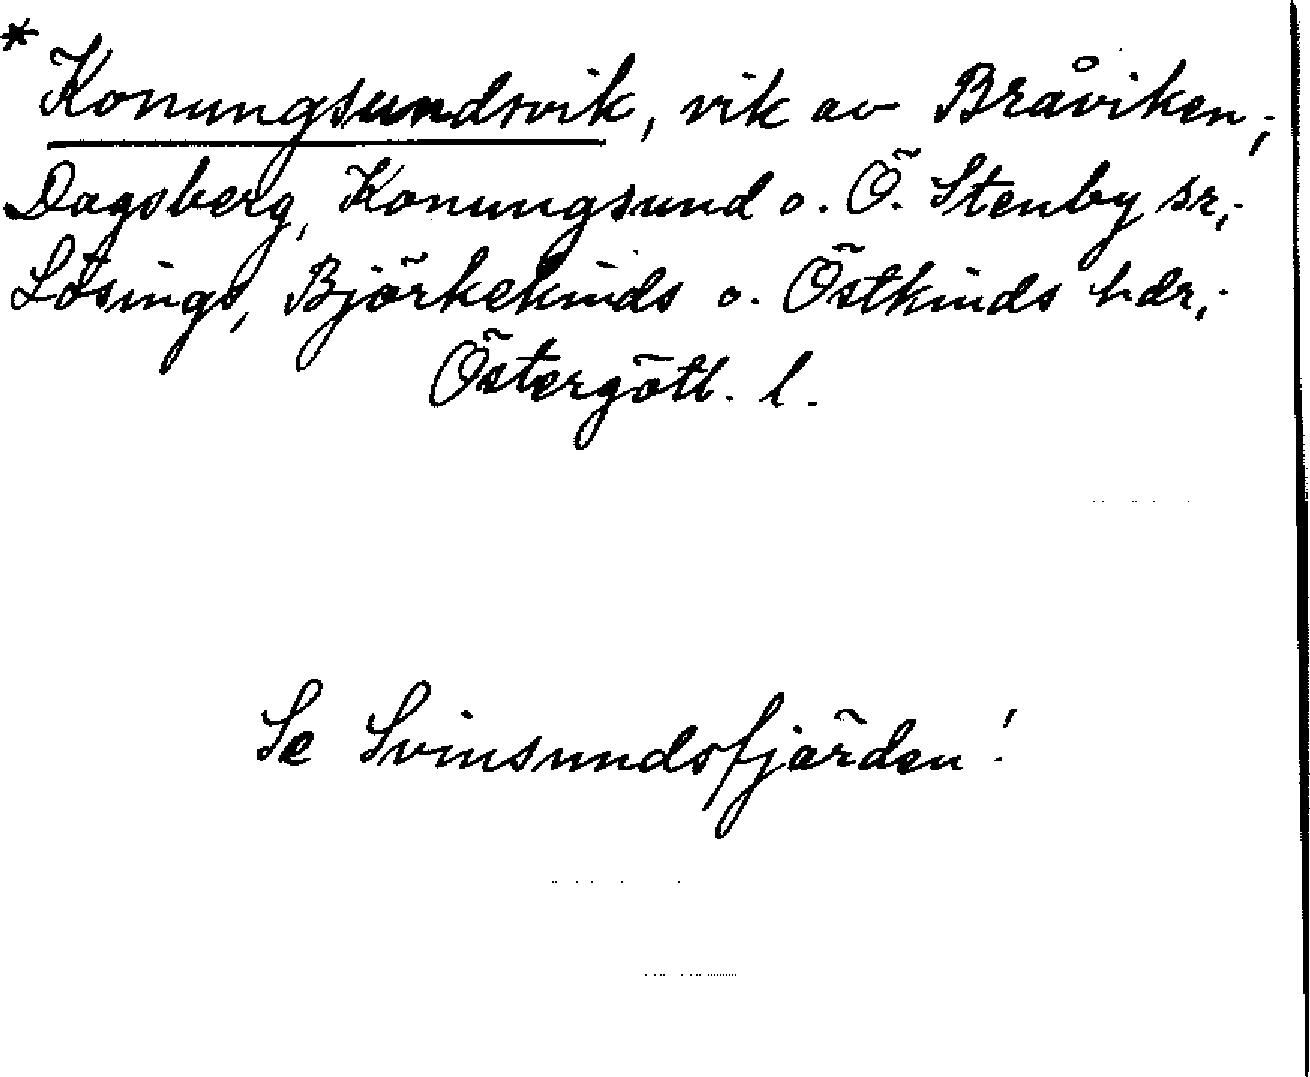 * Konungsundsvik, vik av Bråviken;
Dagsberg, Konungsund o. Ö. Stenby sr,;
Lösings, Björkekinds o. Östkinds hdr,;
Östergötl. l.
Se Svinsundsfjärden!